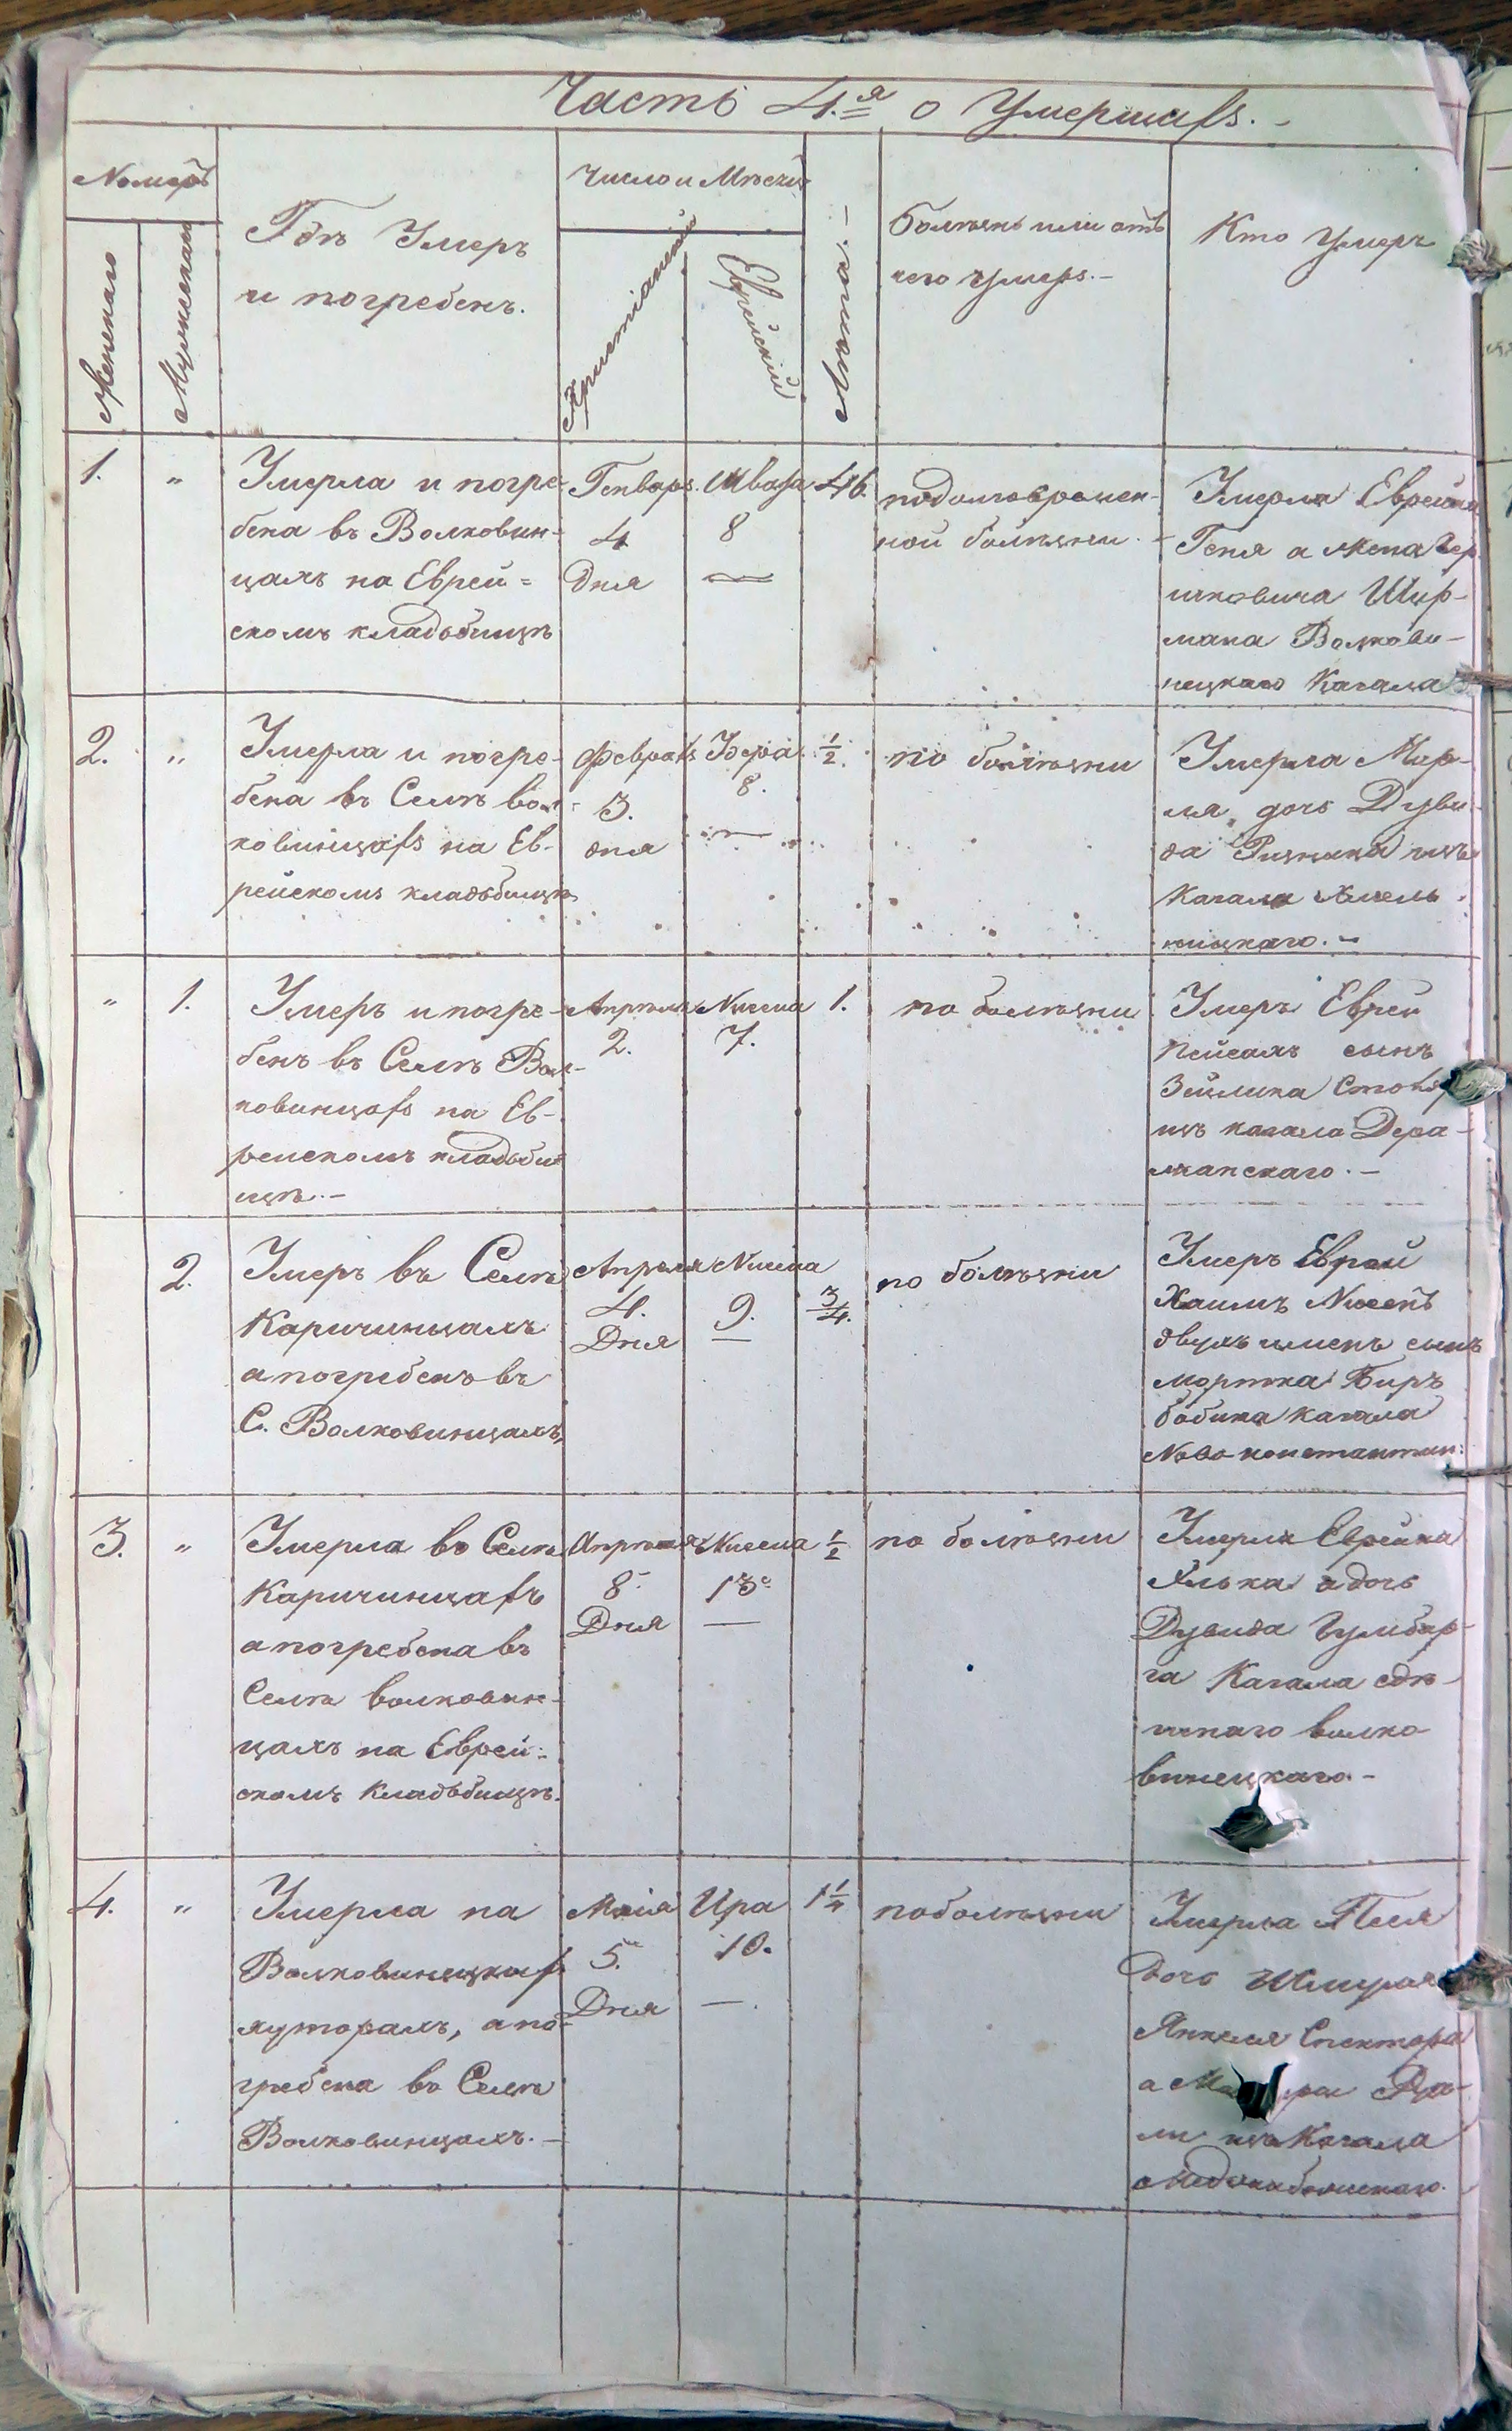 Часть 4.я о Умершихъ. -
Номеръ
Женскаго
Мужескаго
Гдѣ Умеръ
и погребенъ.
Число и Мѣсяцъ
Христіанскій
Еврейский
Болѣзнь или отъ
чего умеръ. -
Кто Умеръ
1.
"
Умерла и погре-
бена въ Волковин-
цахъ на Еврей=
скомъ кладьбищѣ
Генваря
4
Дня
Швата
8
46.
подолговремен-
ной болѣзни. -
Умерла Еврейка
Геня а жена Гер
шковича Шир-
мана Волкови-
нецкаго Кагала
2.
"
Умерла и погре-
бена въ Селѣ Вол-
ковинцахъ на Ев-
рейскомъ кладьбищѣ
Февраля
3.
дня
8.
1/2.
по болѣзни
Умерла Мир-
ля дочь Дуви-
да изъ
Кагала Хмель
ницкаго. -
"
1.
Умеръ и погре-
бенъ въ Селѣ Вол-
ковинцахъ на Ев-
рейскомъ кладьби
щѣ. -
Апрѣля
2.
Нисена
7.
1.
по болѣзни
Умеръ Еврей
Пейсахъ сынъ
Зейлика
изъ кагала Дера-
жнанскаго. -
2.
Умеръ въ Селѣ
Каричинцахъ
а погребенъ въ
С. Волковинцахъ,
Апреля
4.
Дня
Нисена
9.
3/4.
по болѣзни
Умеръ Еврей
Хаимъ Нисенъ
двухъ именъ сынъ
Мортка Бир
кагала
Ново константин:
3.
"
Умерла въ Селѣ
Каричинцахъ
а погребена въ
Селѣ Волковин-
цахъ на Еврей-
скомъ Кладьбищѣ.
Апрѣля
8.
Дня
Нисена
13.
1/2
по болѣзни
Умерла Еврейка
а дочь
Дувида Гумбер-
га Кагала сдѣ-
шнаго Волко
винецкаго -
4.
"
Умерла на
Волковинецкихъ
хуторахъ, а по-
гребена въ Селѣ
Волковинцахъ. -
Маія
5.
Дня
Ира
10.
1 1/4
по болѣзни
Умерла Песя
дочь Шмуля
Янкеля Спектора
а
ли изъ Кагала
Меджибожскаго.